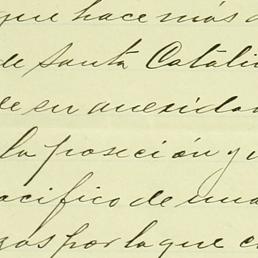 que hace más d
de Santa Catali
de su anexidad
la poseción y u
acifico de una
zos por lo que e